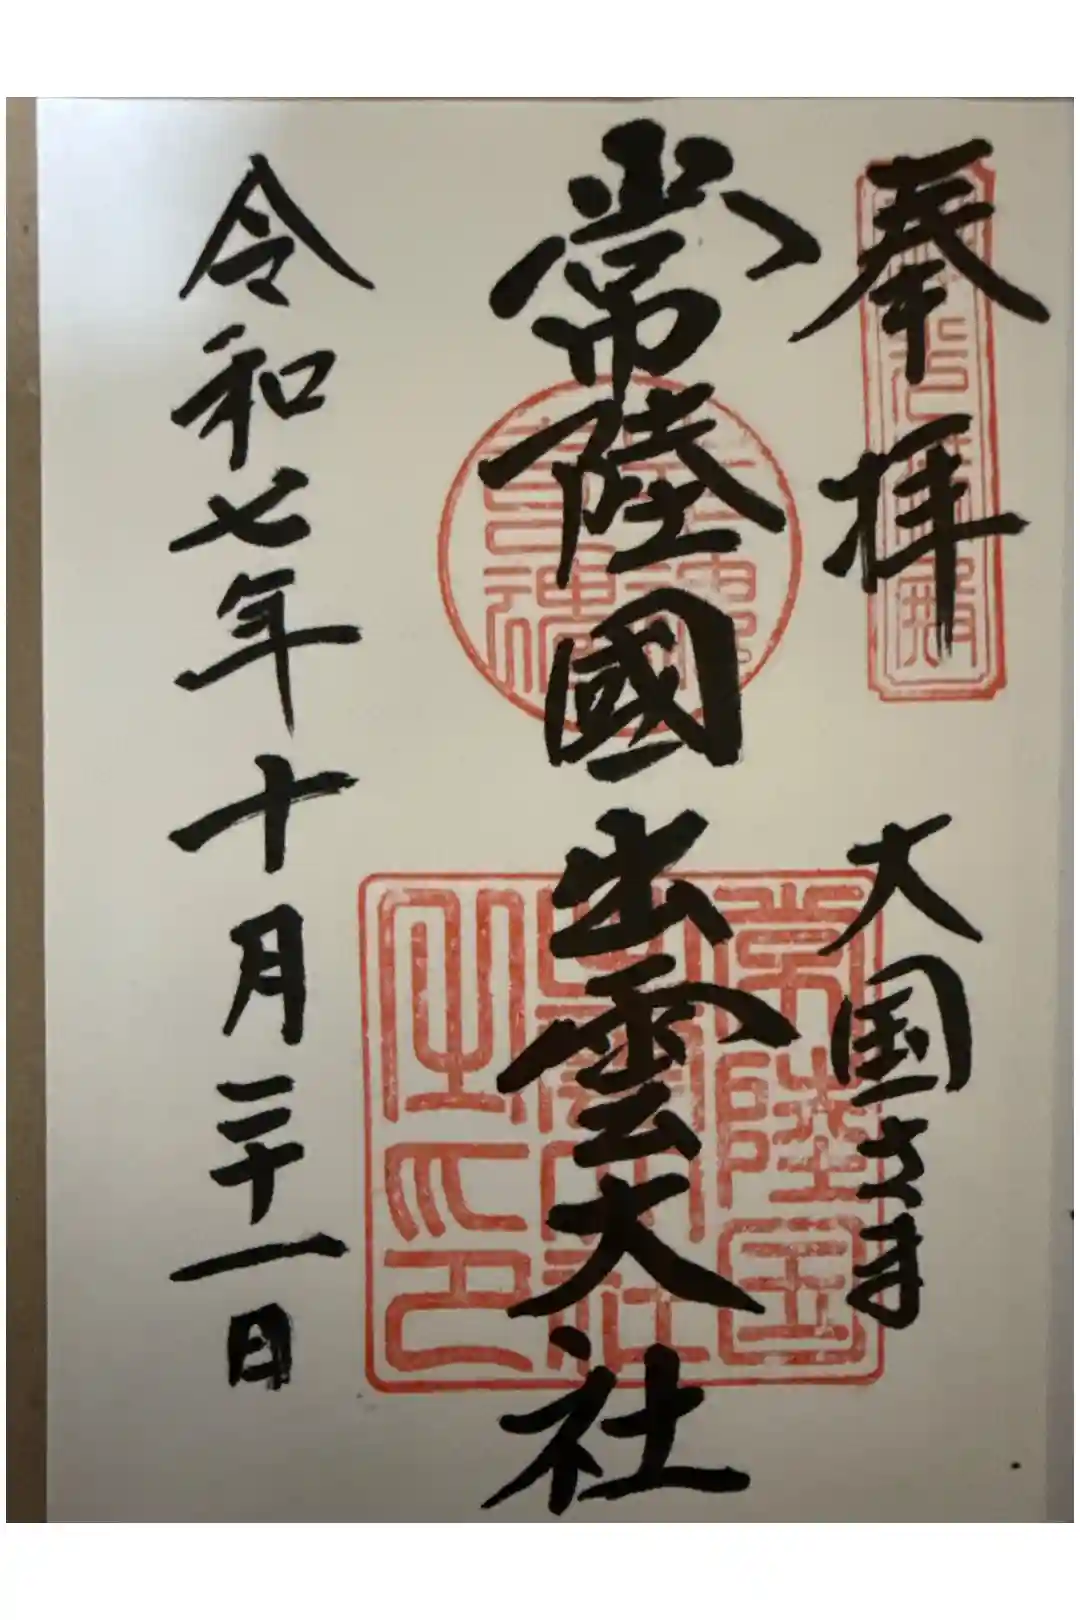 奉拝
大国さま
常陸國出雲大社
常陸国
出雲大社
之印
令和七年十月二十一日